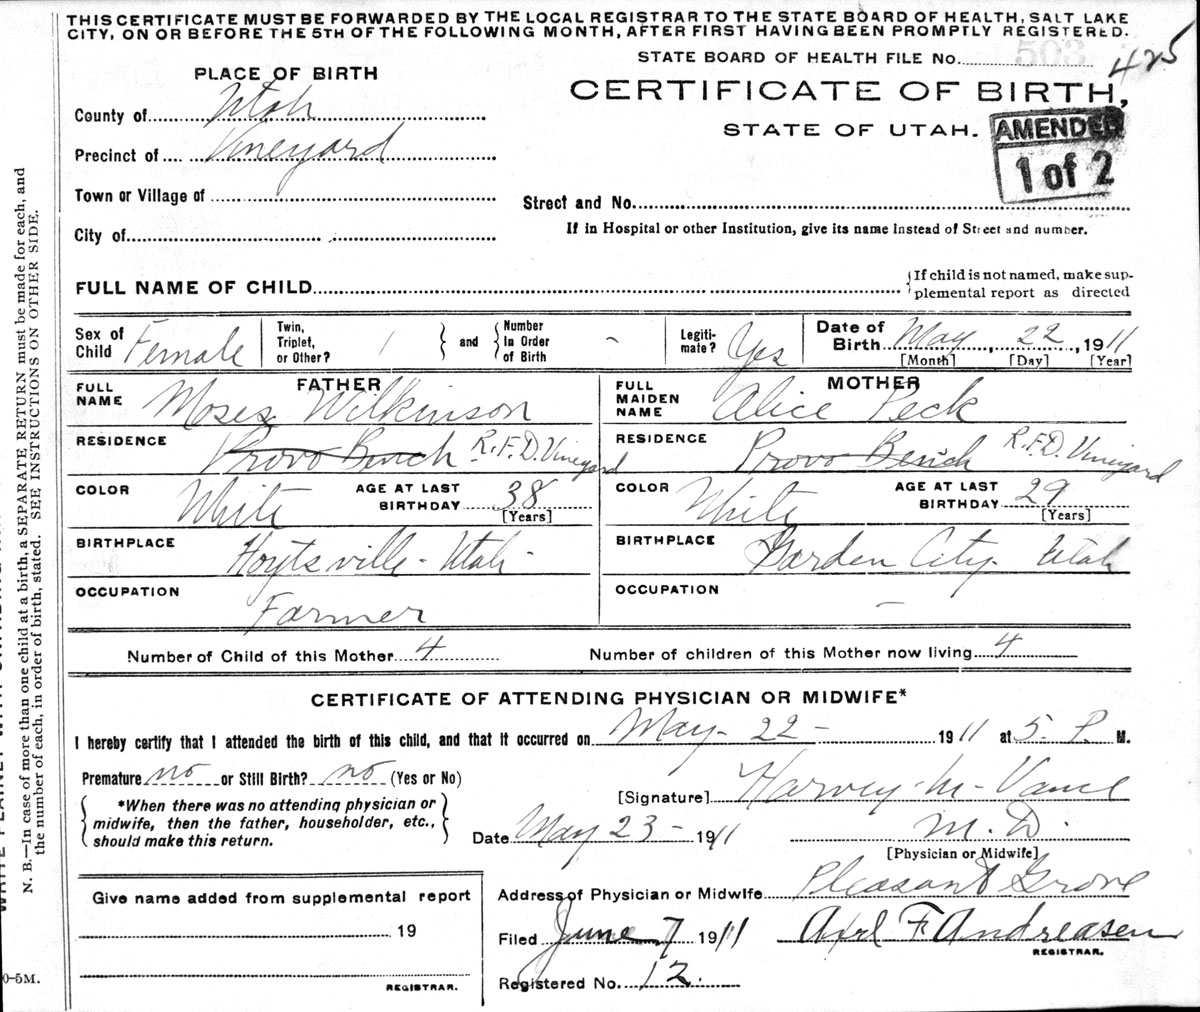 THIS CERTIFICATE MUST BE FORWARDED BY THE LOCAL REGISTRAR TO THE STATE BOARD OF HEALTH, SALT LAKE
CITY, ON OR BEFORE THE 5TH OF THE FOLLOWING MONTH, AFTER FIRST HAVING BEEN PROMPTLY REGISTERED.
STATE BOARD OF HEALTH FILE No. 503 425
PLACE OF BIRTH
CERTIFICATE OF BIRTH,
STATE OF UTAH.
AMENDED
1 of 2
County of Utah
Precinct of Vineyard
Town or Village of
Street and No.
City of
If in Hospital or other Institution, give its name Instead of Street and number.
FULL NAME OF CHILD
If child is not named, make sup-
plemental report as directed
Sex of Child Female
Twin, Triplet, or Other? /
and
Number In Order of Birth -
Legiti-mate? Yes
Date of Birth May, 22, 1911
[Month] [Day] [Year]
FATHER
FULL NAME Moses Wilkinson
RESIDENCE Provo Bench R.F.D. Vineyard
COLOR White AGE AT LAST BIRTHDAY 38
[Years]
BIRTHPLACE Hoytsville - Utah -
OCCUPATION Farmer
MOTHER
FULL MAIDEN NAME Alice Peck
RESIDENCE Provo Bench R.F.D. Vineyard
COLOR White AGE AT LAST BIRTHDAY 29
[Years]
BIRTHPLACE Garden City - Utah
OCCUPATION -
Number of Child of this Mother 4 Number of children of this Mother now living 4
CERTIFICATE OF ATTENDING PHYSICIAN OR MIDWIFE*
I hereby certify that I attended the birth of this child, and that it occurred on May - 22 - 1911 at 5. P. M.
Premature no or Still Birth? no (Yes or No)
*When there was no attending physician or
midwife, then the father, householder, etc.,
should make this return.
[Signature] Harvey - M - Vance
Date May 23 - 1911 M. D.
[Physician or Midwife]
Address of Physician or Midwife Pleasant Grove
Filed June 7 1911 Axel F Andreasen
REGISTRAR.
Registered No. 12.
Give name added from supplemental report
19
REGISTRAR.
N. B.—In case of more than one child at a birth, a SEPARATE RETURN must be made for each, and
the number of each, in order of birth, stated. SEE INSTRUCTIONS ON OTHER SIDE.
0-5M.